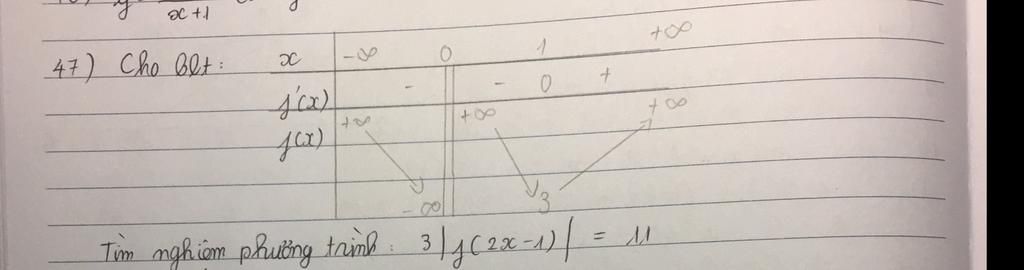 x+1
47) Cho Bbt: x -∞ 0 1 +∞
f'(x) - - 0 +
f(x) +∞ -∞ +∞ 3 +∞
Tìm nghiệm phường trình: 3|f(2x-1)| = 11